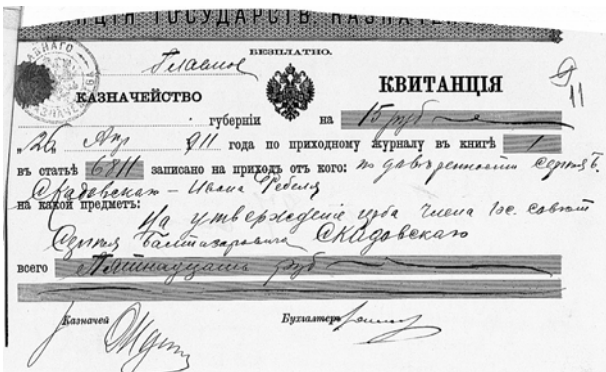 ЦІЯ ГОСУДАРСТВ. КАЗНАЧЕ
БЕЗПЛАТНО.
Главное
КАЗНАЧЕЙСТВО
КВИТАНЦІЯ
9
11
губерніи на 15 руб
„26 Апр 911 года по приходному журналу въ книгѣ 1
въ статьѣ 6811 записано на приходъ отъ кого: по довѣренности Сергѣя Б.
Скадовскаго - Ивана
на какой предметъ:
На утвержденіе герба члена Гос. совѣта
Сергѣя Балтазаровича Скадовскаго
всего Пятнадцать руб
Казначей
Бухгалтеръ